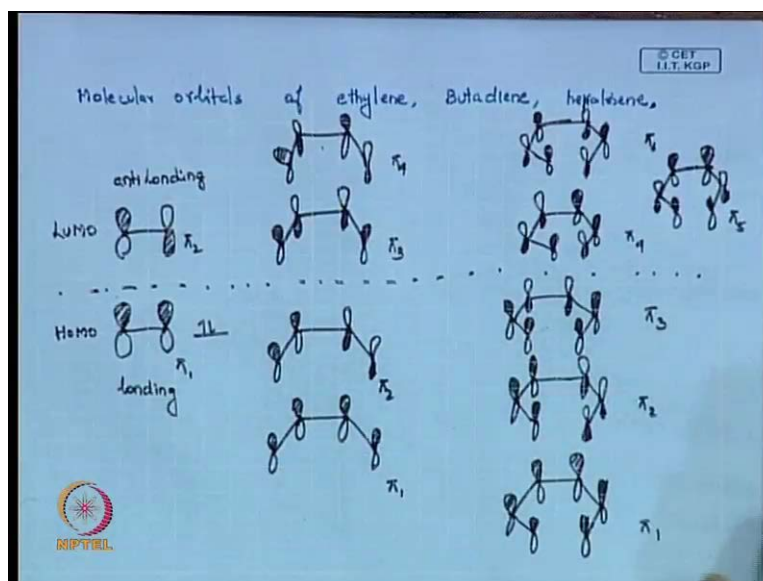 © CET
I.I.T. KGP
Molecular orbitals of ethylene, Butadiene, hexatriene,
anti bonding
LUMO π2
HOMO π1
bonding
π4
π3
π2
π1
π6
π5
π4
π3
π2
π1
NPTEL